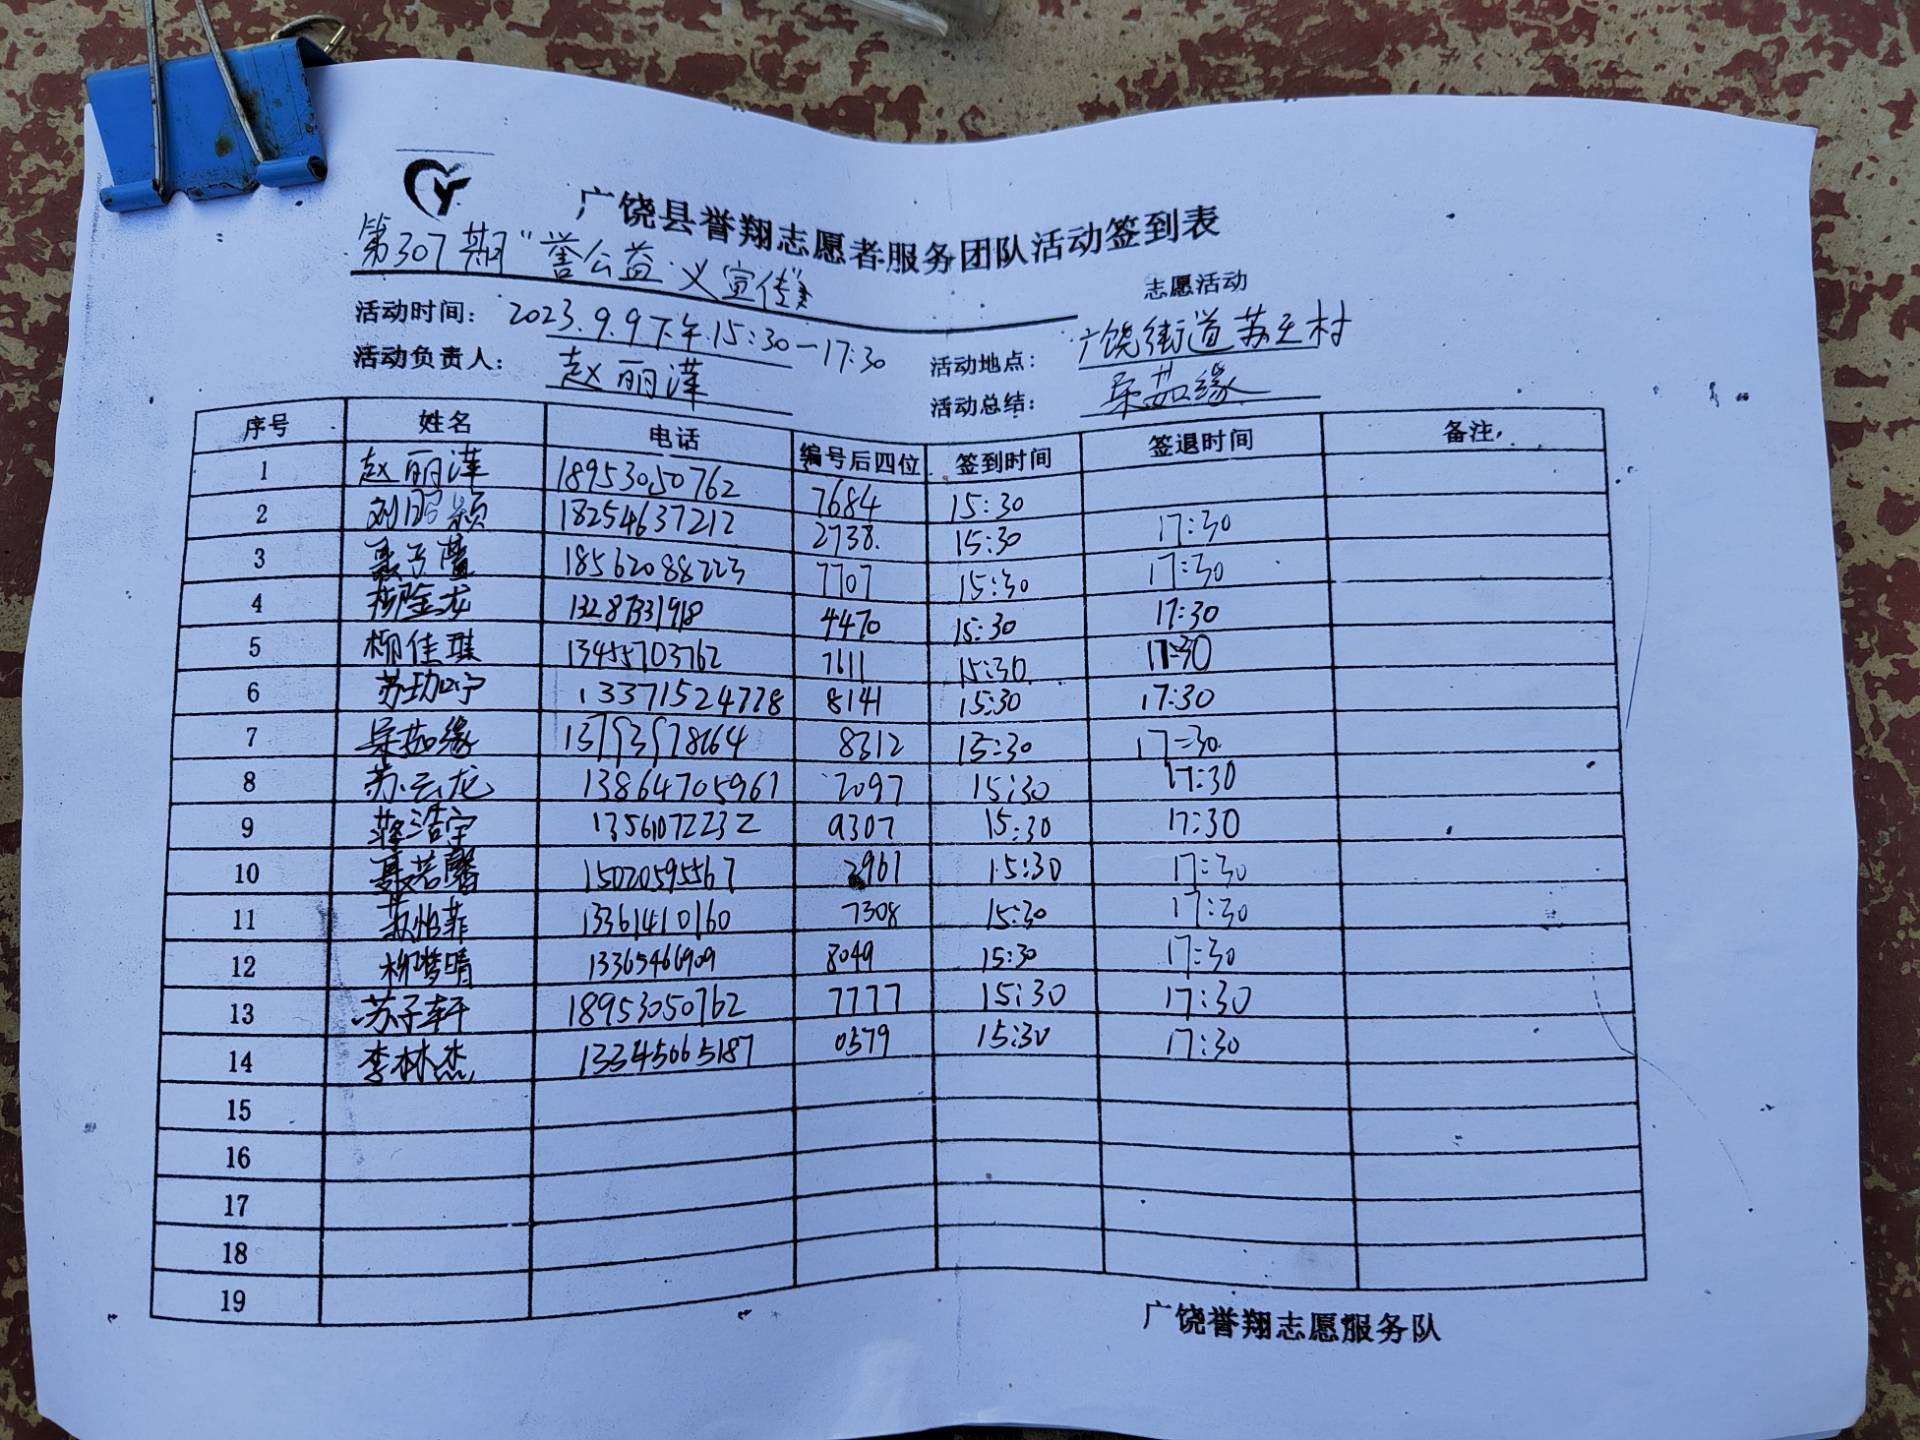 广饶县誉翔志愿者服务团队活动签到表
第307期"誉公益·义宣传" 志愿活动
活动时间: 2023.9.9下午15:30-17:30 活动地点: 广饶街道苏王村
活动负责人: 赵丽萍 活动总结: 吴茹缘
序号 姓名 电话 编号后四位 签到时间 签退时间 备注
1 赵丽萍 18953050762 7684 15:30
2 刘照颖 18254637212 2738 15:30 17:30
3 聂子萱 18562088223 7707 15:30 17:30
4 金龙 13287331918 4470 15:30 17:30
5 柳佳琪 13455703762 7611 15:30 17:30
6 苏 宁 13371524778 8141 15:30 17:30
7 吴茹缘 8312 15:30 17:30
8 苏云龙 13864705961 2097 15:30 17:30
9 薛浩宇 13561072232 9307 15:30 17:30
10 聂若馨 15020595567 3961 15:30 17:30
11 苏怡菲 13361410160 7308 15:30 17:30
12 柳梦晴 13365466909 8049 15:30 17:30
13 苏子轩 18953050762 7777 15:30 17:30
14 李林杰 13345065187 0579 15:30 17:30
15
16
17
18
19
广饶誉翔志愿服务队